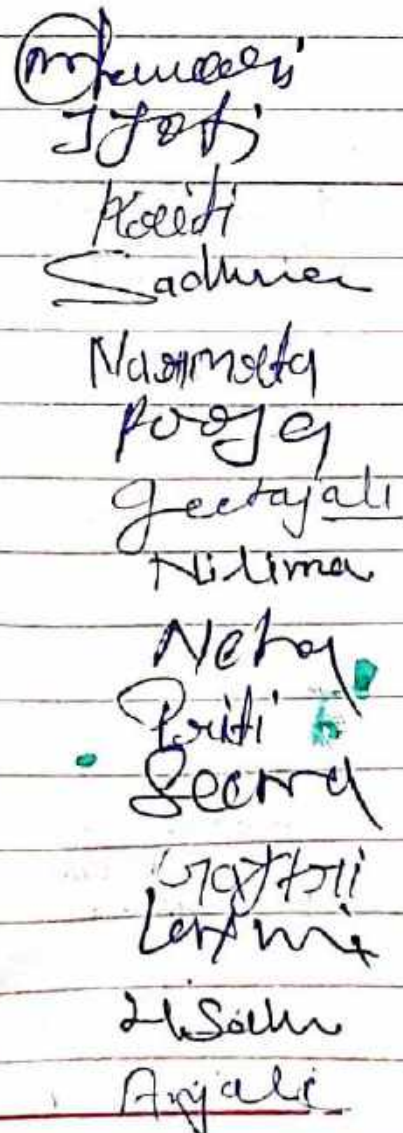 Jyoti
Kriti
Sadhna
Narmata
Pooja
Geetajali
Nilima
Neha
Priti
Seema
Gayatri
Laxmi
H Sahu
Anjali